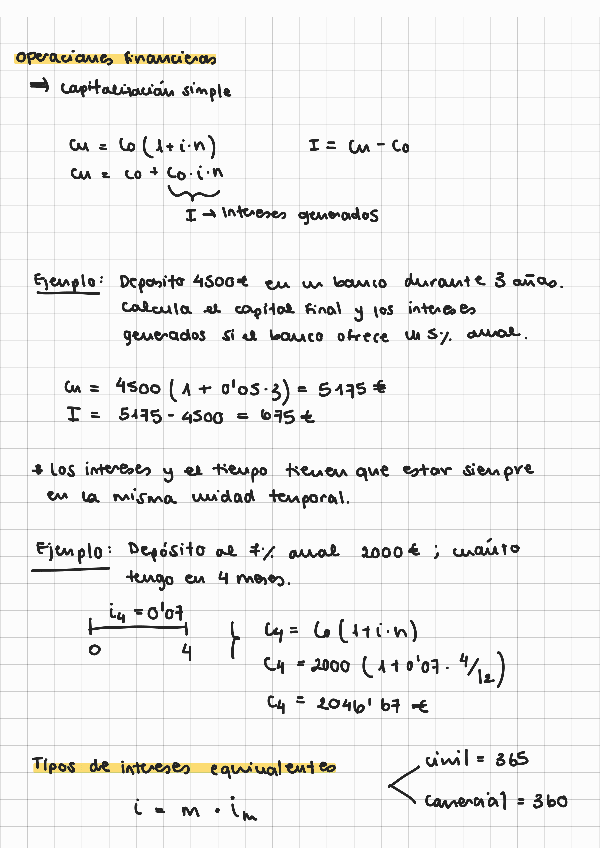 Operaciones financieras
→ capitalización simple
Cn = Co (1+i·n)   I = Cn - Co
Cn = Co + Co·i·n
I → intereses generados
Ejemplo: Deposito 4500€ en un banco durante 3 años.
Calcula el capital final y los intereses
generados si el banco ofrece un 5% anual.
Cn = 4500 (1 + 0'05·3) = 5175 €
I = 5175 - 4500 = 675 €
* Los intereses y el tiempo tienen que estar siempre
en la misma unidad temporal.
Ejemplo: Depósito al 7% anual 2000€; cuánto
tengo en 4 meses.
i4 = 0'07
0 4
C4 = Co (1+i·n)
C4 = 2000 (1+0'07 · 4/12)
C4 = 2046'67 €
Tipos de intereses equivalentes
civil = 365
comercial = 360
i = m · im